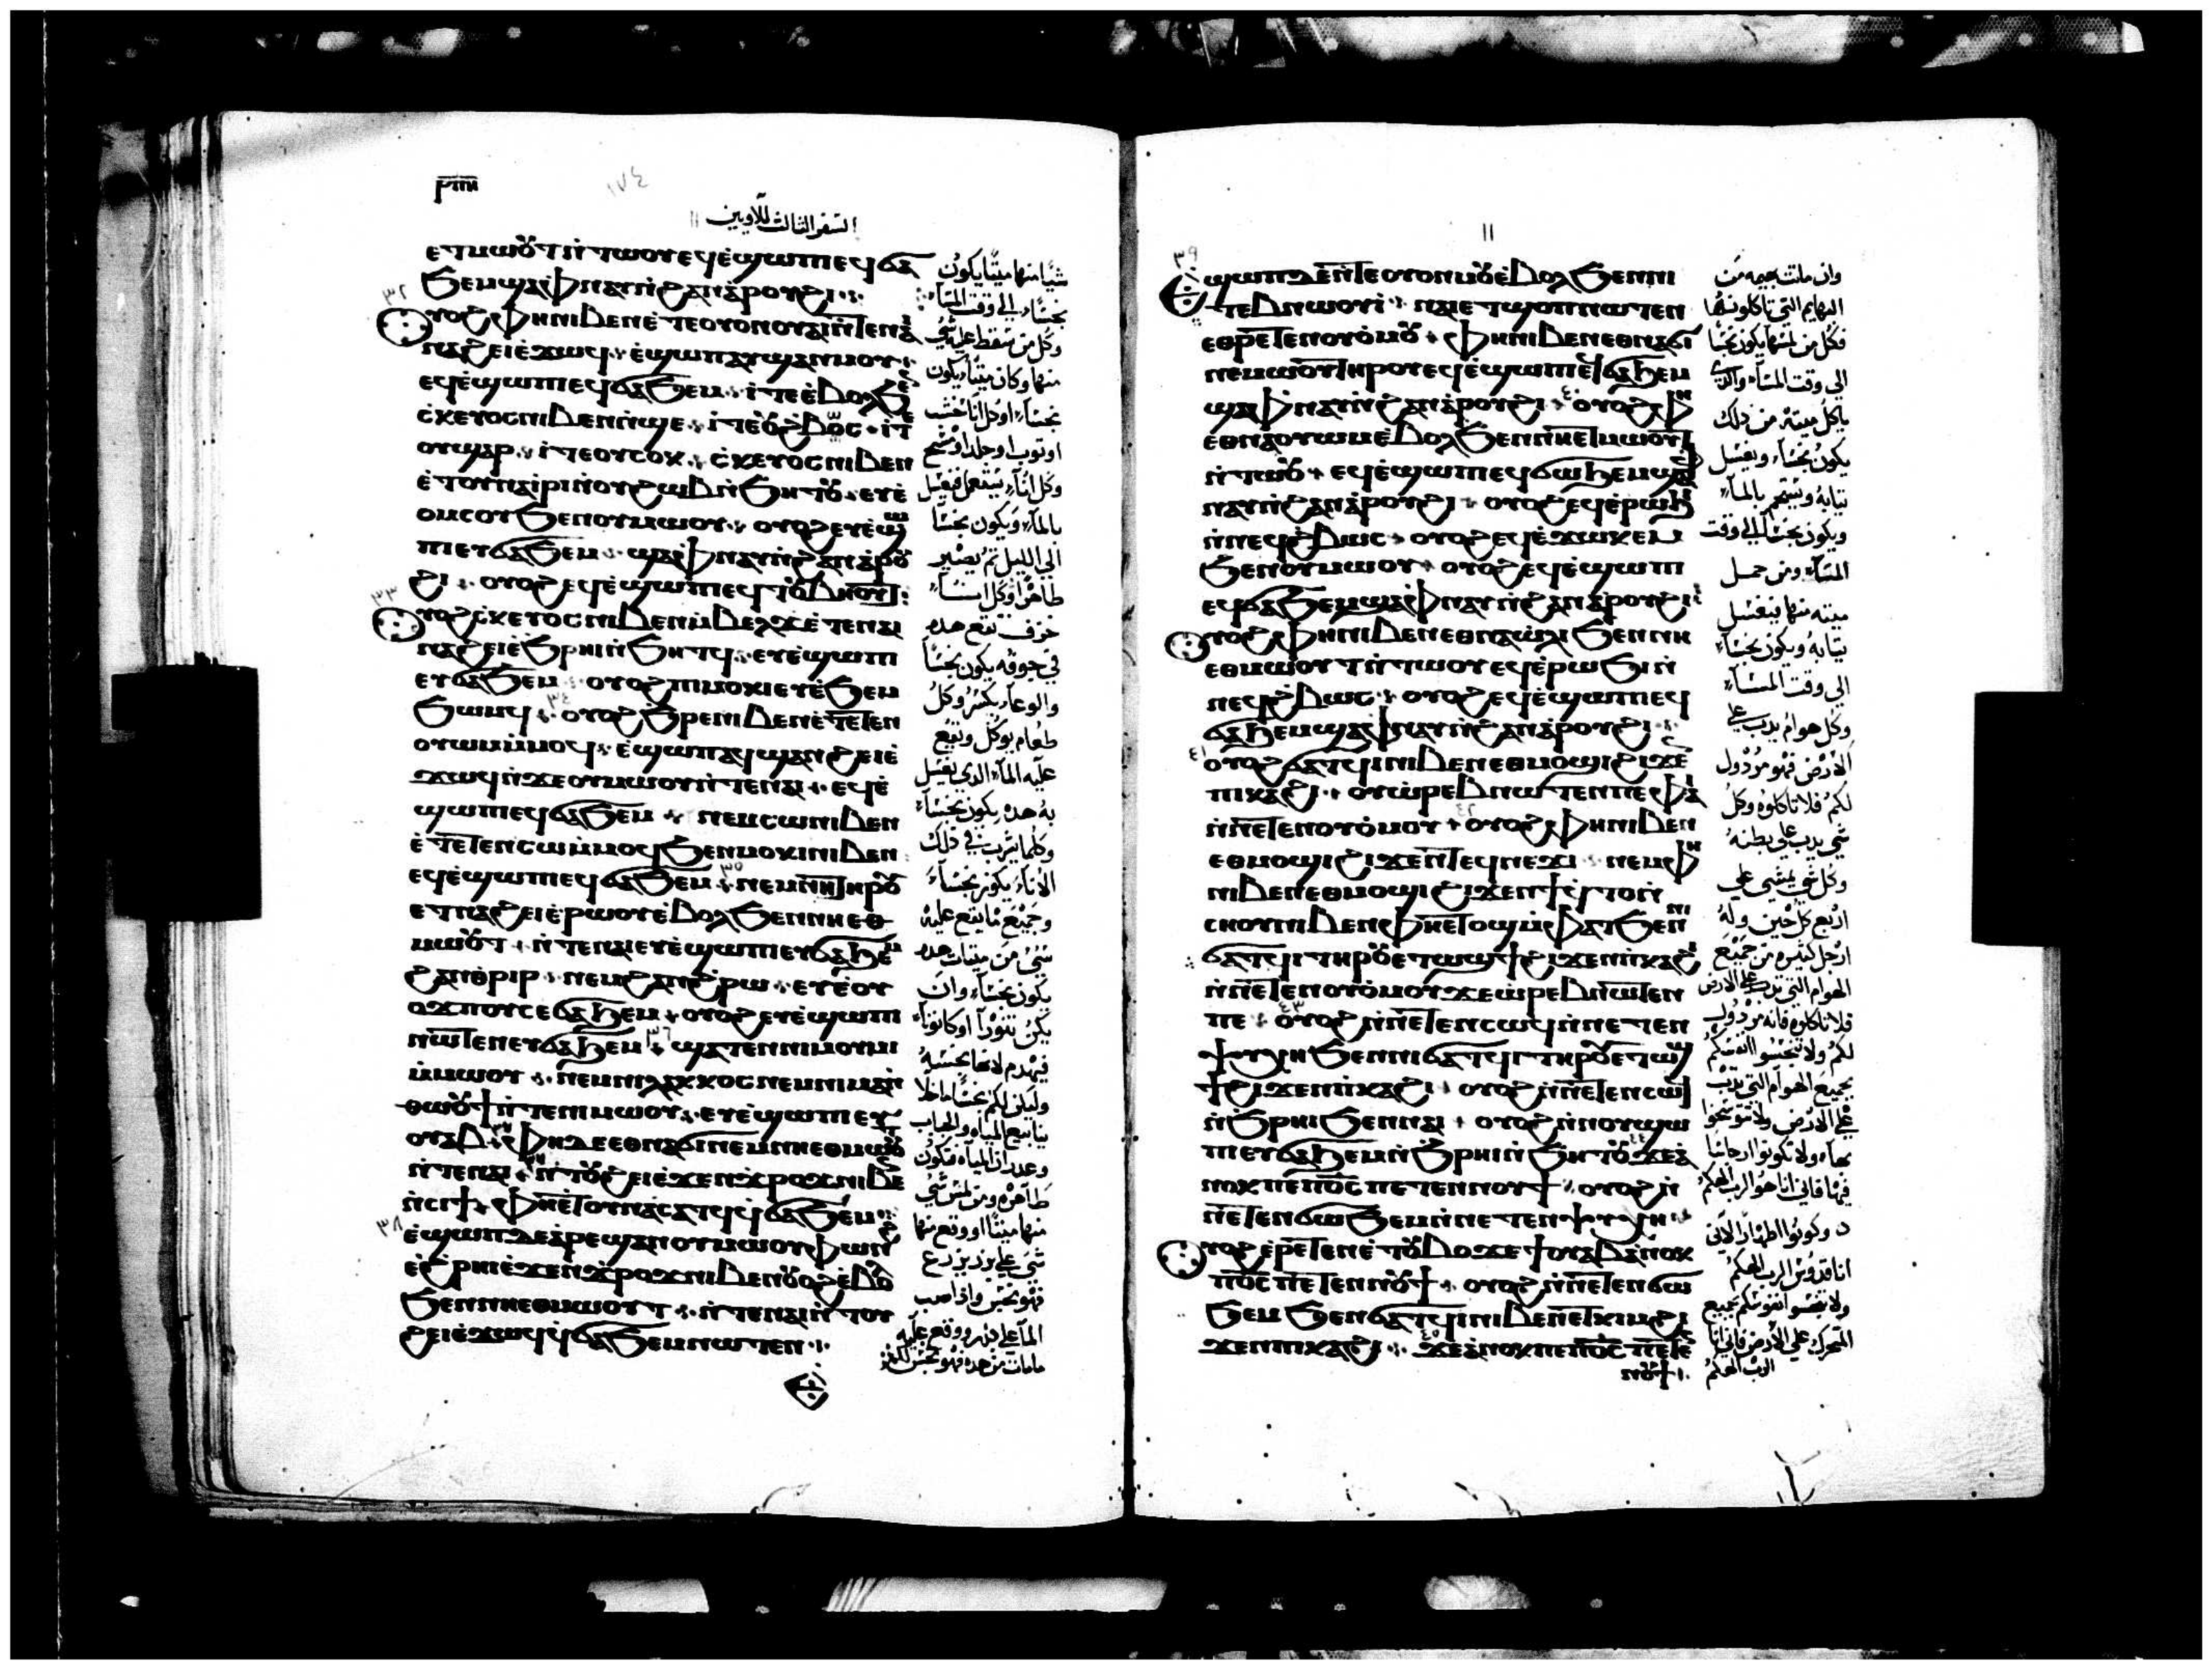 ⲣⲓⲏ
١٧٤
السفر الثالث للاويين
١١
ⲉⲧⲙⲱⲟⲩⲧ ⲛ̀ⲧⲱⲟⲩ ⲉϥⲉ̀ϣⲱⲡⲓ ⲉϥϭⲁ
ϧⲉⲙ ϣⲁ ⲫ̀ⲛⲁⲩ ⲛ̀ϩⲁⲛⲁ̀ⲣⲟⲩϩⲓ
٣٢
ⲟⲩⲟϩ ⲫⲏ ⲛⲓⲃⲉⲛ ⲉ̀ⲧⲉ ⲟⲩⲟⲛ ⲟⲩⲁⲓ ⲛ̀ⲧⲉⲛⲁⲓ
ⲛⲁϩⲉⲓ ⲉ̀ϫⲱϥ ⲉ̀ϣⲱⲡ ⲁⲩϣⲁⲛⲙⲟⲩ
ⲉϥⲉ̀ϣⲱⲡⲓ ⲉϥϭⲁϧⲉⲙ ⲓ̀ⲧⲉ ⲉ̀ⲃⲟⲗ ϧⲉ
ⲥ̀ⲕⲉⲩⲟⲥ ⲛⲓⲃⲉⲛ ⲛ̀ϣⲉ ⲓ̀ⲧⲉ ⲟⲩϩⲃⲟⲥ ⲓ̀ⲧⲉ
ⲟⲩϣⲁⲣ ⲓ̀ⲧⲉ ⲟⲩⲥⲟⲕ ⲥ̀ⲕⲉⲩⲟⲥ ⲛⲓⲃⲉⲛ
ⲉ̀ⲧⲟⲩⲛⲁⲓ̀ⲣⲓ ⲛ̀ⲟⲩϩⲱⲃ ⲛ̀ϧⲏⲧⲟⲩ ⲉⲩⲉ̀
ⲟⲙⲥⲟⲩ ϧⲉⲛ ⲟⲩⲙⲱⲟⲩ ⲟⲩⲟϩ ⲉⲩⲉ̀ϣⲱ
ⲡⲓ ⲉⲩϭⲁϧⲉⲙ ϣⲁ ⲫ̀ⲛⲁⲩ ⲛ̀ϩⲁⲛⲁ̀ⲣⲟⲩ
ϩⲓ ⲟⲩⲟϩ ⲉϥⲉ̀ϣⲱⲡⲓ ⲉϥⲧⲟⲩⲃⲏⲟⲩⲧ
٣٣
ⲟⲩⲟϩ ⲥ̀ⲕⲉⲩⲟⲥ ⲛⲓⲃⲉⲛ ⲙ̀ⲃⲉⲗϫ ⲉ̀ⲧⲉ ⲛⲁⲓ
ⲛⲁϩⲉⲓ ⲉ̀ϧⲣⲏⲓ ⲛ̀ϧⲏⲧϥ ⲉⲩⲉ̀ϣⲱⲡⲓ
ⲉⲩϭⲁϧⲉⲙ ⲟⲩⲟϩ ⲡⲓⲙⲟⲕⲓ ⲉⲩⲉ̀ϧⲉⲙ
٣٤
ϧⲱⲙϥ ⲟⲩⲟϩ ϧ̀ⲣⲉ ⲛⲓⲃⲉⲛ ⲉ̀ⲧⲉⲧⲉⲛ
ⲟⲩⲱⲙ ⲙ̀ⲙⲟϥ ⲉ̀ϣⲱⲡ ⲁϥϣⲁⲛϩⲉⲓ ⲉ̀
ϫⲱϥ ⲛ̀ϫⲉ ⲟⲩⲙⲱⲟⲩ ⲛ̀ⲧⲉⲛⲁⲓ ⲉϥⲉ̀
ϣⲱⲡⲓ ⲉϥϭⲁϧⲉⲙ ⲛⲉⲙ ⲥⲱ ⲛⲓⲃⲉⲛ
ⲉ̀ⲧⲉⲧⲉⲛⲥⲱ ⲙ̀ⲙⲟϥ ϧⲉⲛ ⲙⲟⲕⲓ ⲛⲓⲃⲉⲛ
٣٥
ⲉϥⲉ̀ϣⲱⲡⲓ ⲉϥϭⲁϧⲉⲙ ⲛⲉⲙ ⲛⲏ ⲧⲏⲣⲟⲩ
ⲉⲧⲛⲁϩⲉⲓ ⲉ̀ⲣⲱⲟⲩ ⲉ̀ⲃⲟⲗ ϧⲉⲛ ⲛⲏⲉⲑ
ⲙⲱⲟⲩⲧ ⲛ̀ⲧⲉⲛⲁⲓ ⲉⲩⲉ̀ϣⲱⲡⲓ ⲉⲩϭⲁϧⲉⲙ
ϩⲁⲛⲑⲣⲓⲣ ⲛⲉⲙ ϩⲁⲛϩ̀ⲣⲱ ⲉⲩⲉ̀ⲟⲩ
ⲟϫⲡⲟⲩ ⲥⲉϭⲁϧⲉⲙ ⲟⲩⲟϩ ⲉⲩⲉ̀ϣⲱⲡⲓ
٣٦
ⲛⲱⲧⲉⲛ ⲉⲩϭⲁϧⲉⲙ ϣⲁⲧⲉⲛ ⲛⲓⲙⲟⲩⲙⲓ
ⲙ̀ⲙⲱⲟⲩ ⲛⲉⲙ ⲛⲓⲗⲁⲕⲕⲟⲥ ⲛⲉⲙ ⲛⲓⲙⲁⲛ̀
ⲑⲱⲟⲩϯ ⲛ̀ⲧⲉ ⲛⲓⲙⲱⲟⲩ ⲉⲩⲉ̀ϣⲱⲡⲓ ⲉⲩ
٣٧
ⲟⲩⲁⲃ ⲫⲏ ⲇⲉ ⲉⲑⲛⲁϭⲓ ⲛⲉⲙ ⲛⲏⲉⲑⲙⲱⲟⲩⲧ
ⲛ̀ⲥⲓϯ ⲫⲏⲉⲧⲟⲩⲛⲁⲥⲁⲧϥ ϥ̀ϭⲁϧⲉⲙ
٣٨
ⲉ̀ϣⲱⲡ ⲇⲉ ⲁⲣⲉϣⲁⲛ ⲟⲩⲙⲱⲟⲩ ⲫⲱⲛ
ⲉ̀ϩⲣⲏⲓ ⲉ̀ϫⲉⲛ ϫ̀ⲣⲟϫ ⲛⲓⲃⲉⲛ ⲟⲩⲟϩ ⲉ̀ⲃⲟⲗ
ϧⲉⲛ ⲛⲏⲉⲑⲙⲱⲟⲩⲧ ⲛ̀ⲧⲉⲛⲁⲓ ⲛ̀ⲧⲟⲩ
ϩⲉⲓ ⲉ̀ϫⲱϥ ϥ̀ϭⲁϧⲉⲙ ⲛⲱⲧⲉⲛ
شيًا منها ميتًا يكون
نجسًا الي وقت المسآ
وكل من سقط عليه شي
منها وكان ميتًا يكون
نجسًا اوكل انآ خشب
اوثوب اوجلد اومسح
بالمآ ويكون نجسًا
الي الليل ثم يصير
طاهرًا وكل انآ
خزف تقع هده
في جوفه يكون نجسًا
والوعآ يكسر وكل
طعام يوكل ويقع
عليه المآ الدي يغسل
به هده يكون نجسًا
وكلما يشرب في دلك
الانآ يكون نجسًا
وجميع ما يقع عليه
شي من ميتات هده
يكون نجسًا وان
١١
٣٩
ⲉ̀ϣⲱⲡ ⲇⲉ ⲛ̀ⲧⲉ ⲟⲩⲟⲛ ⲙⲟⲩ ⲉ̀ⲃⲟⲗ ϧⲉⲛ ⲛⲓ
ⲧⲉⲃⲛⲱⲟⲩⲓ̀ ⲛⲁⲓ ⲉⲧϣⲟⲡ ⲛⲱⲧⲉⲛ
ⲉⲑⲣⲉⲧⲉⲛⲟⲩⲟ̀ⲙⲟⲩ ⲫⲏ ⲛⲓⲃⲉⲛ ⲉⲑⲛⲁϭⲓ
ⲛⲉⲙⲱⲟⲩ ⲧⲏⲣⲟⲩ ⲉϥⲉ̀ϣⲱⲡⲓ ⲉϥϭⲁϧⲉⲙ
٤٠
ϣⲁ ⲫ̀ⲛⲁⲩ ⲛ̀ϩⲁⲛⲁ̀ⲣⲟⲩϩⲓ ⲟⲩⲟϩ ⲫⲏ
ⲉⲑⲛⲁⲟⲩⲱⲙ ⲉ̀ⲃⲟⲗ ϧⲉⲛ ⲛⲏⲉⲧⲙⲱⲟⲩⲧ
ⲛ̀ⲧⲱⲟⲩ ⲉϥⲉ̀ϣⲱⲡⲓ ⲉϥϭⲱϧⲉⲙ ϣⲁ ⲫ̀
ⲛⲁⲩ ⲛ̀ϩⲁⲛⲁ̀ⲣⲟⲩϩⲓ ⲟⲩⲟϩ ⲉϥⲉ̀ⲣⲱϧⲓ
ⲛ̀ⲛⲉϥϩ̀ⲃⲱⲥ ⲟⲩⲟϩ ⲉϥⲉ̀ϫⲱⲕⲉⲙ
ϧⲉⲛ ⲟⲩⲙⲱⲟⲩ ⲟⲩⲟϩ ⲉϥⲉ̀ϣⲱⲡⲓ
ⲉϥϭⲁϧⲉⲙ ϣⲁ ⲫ̀ⲛⲁⲩ ⲛ̀ϩⲁⲛⲁ̀ⲣⲟⲩϩⲓ
ⲟⲩⲟϩ ⲫⲏ ⲛⲓⲃⲉⲛ ⲉⲑⲛⲁⲱ̀ⲗⲓ ϧⲉⲛ ⲛⲏ
ⲉⲑⲙⲱⲟⲩⲧ ⲛ̀ⲧⲱⲟⲩ ⲉϥⲉ̀ⲣⲱϧⲓ ⲛ̀
ⲛⲉϥϩ̀ⲃⲱⲥ ⲟⲩⲟϩ ⲉϥⲉ̀ϣⲱⲡⲓ ⲉϥ
ϭⲁϧⲉⲙ ϣⲁ ⲫ̀ⲛⲁⲩ ⲛ̀ϩⲁⲛⲁ̀ⲣⲟⲩϩⲓ
٤١
ⲟⲩⲟϩ ϭⲁⲧϥⲓ ⲛⲓⲃⲉⲛ ⲉⲑⲙⲟϣⲓ ϩⲓϫⲉⲛ
ⲡⲓⲕⲁϩⲓ ⲟⲩⲱ̀ⲣⲉⲃ ⲛⲱⲧⲉⲛ ⲡⲉ ⲫⲁⲓ
٤٢
ⲛ̀ⲛⲉⲧⲉⲛⲟⲩⲟ̀ⲙⲟⲩ ⲟⲩⲟϩ ⲫⲏ ⲛⲓⲃⲉⲛ
ⲉⲑⲙⲟϣⲓ ϩⲓϫⲉⲛ ⲧⲉϥⲛⲉϫⲓ ⲛⲉⲙ ⲫⲏ
ⲛⲓⲃⲉⲛ ⲉⲑⲙⲟϣⲓ ϩⲓϫⲉⲛ ϥ̀ⲧⲟⲩ ⲛ̀
ⲥⲏⲟⲩ ⲛⲓⲃⲉⲛ ⲫⲏⲉⲧⲟϣ ⲙ̀ⲫⲁⲧ ϧⲉⲛ ⲛⲓ
ϭⲁⲧϥⲓ ⲧⲏⲣⲟⲩ ⲉⲧϣⲱϯ ϩⲓϫⲉⲛ ⲡⲓⲕⲁϩⲓ
ⲛ̀ⲛⲉⲧⲉⲛⲟⲩⲟ̀ⲙⲟⲩ ϫⲉ ⲱ̀ⲣⲉⲃ ⲛⲱⲧⲉⲛ
٤٣
ⲡⲉ ⲟⲩⲟϩ ⲛ̀ⲛⲉⲧⲉⲛⲥⲱϥ ⲛ̀ⲛⲉⲧⲉⲛ
ⲯⲩⲭⲏ ϧⲉⲛ ⲛⲓϭⲁⲧϥⲓ ⲧⲏⲣⲟⲩ ⲉⲧϣⲱ
ϯ ϩⲓϫⲉⲛ ⲡⲓⲕⲁϩⲓ ⲟⲩⲟϩ ⲛ̀ⲛⲉⲧⲉⲛⲥⲱϥ
ⲛ̀ϧⲣⲏⲓ ϧⲉⲛ ⲛⲁⲓ ⲟⲩⲟϩ ⲛ̀ⲛⲟⲩϣⲱ
٤٤
ⲡⲓ ⲉⲩϭⲁϧⲉⲙ ⲛ̀ϧⲣⲏⲓ ⲛ̀ϧⲏⲧⲟⲩ ϫⲉ ⲁ̀
ⲛⲟⲕ ⲡⲉ ⲡ̅ⲟ̅ⲥ̅ ⲡⲉⲧⲉⲛⲛⲟⲩϯ ⲟⲩⲟϩ ⲛ̀
ⲛⲉⲧⲉⲛϭⲱϧⲉⲙ ⲛ̀ⲛⲉⲧⲉⲛⲯⲩⲭⲏ
ⲟⲩⲟϩ ⲉ̀ⲣⲉⲧⲉⲛⲉ̀ⲧⲟⲩⲃⲟ ϫⲉ ϯⲟⲩⲁⲃ ⲁ̀ⲛⲟⲕ
ⲡ̅ⲟ̅ⲥ̅ ⲡⲉⲧⲉⲛⲛⲟⲩϯ ⲟⲩⲟϩ ⲛ̀ⲛⲉⲧⲉⲛϭⲱ
ϧⲉⲙ ϧⲉⲛ ϭⲁⲧϥⲓ ⲛⲓⲃⲉⲛ ⲉⲧⲕⲓⲙ ϩⲓ
٤٥
ϫⲉⲛ ⲡⲓⲕⲁϩⲓ ϫⲉ ⲁ̀ⲛⲟⲕ ⲡⲉ ⲡ̅ⲟ̅ⲥ̅ ⲡⲉⲧⲉ
ⲛⲛⲟⲩϯ
وان ماتت بهيمه من
البهايم التي تاكلونها
فكل من لمسها يكون نجسًا
الي وقت المسآ والدي
ياكل ميته من دلك
يكون نجسًا ويغسل
ثيابه ويستحم بالمآ
ويكون نجسًا الي وقت
المسآ ومن حمل
ميته منها فيغسل
ثيابه ويكون نجسًا
الي وقت المسآ
وكل هوام يدب علي
الارض فهو مردول
لكم فلا تاكلوه وكل
شي يدب علي بطنه
وكل شي يمشي علي
اربع كل حين وله
ارجل كثيره من جميع
الهوام التي تدب علي الارض
فلا تاكلوه فانه مردول
لكم ولا تنجسوا انفسكم
بجميع الهوام التي تدب
فيها فاني انا هو الرب الهكم
وكونوا اطهارًا لاني
انا قدوس الرب الهكم
ولا تنجسوا انفوسكم بجميع
المتحرك علي الارض فاني انا
الرب الهكم